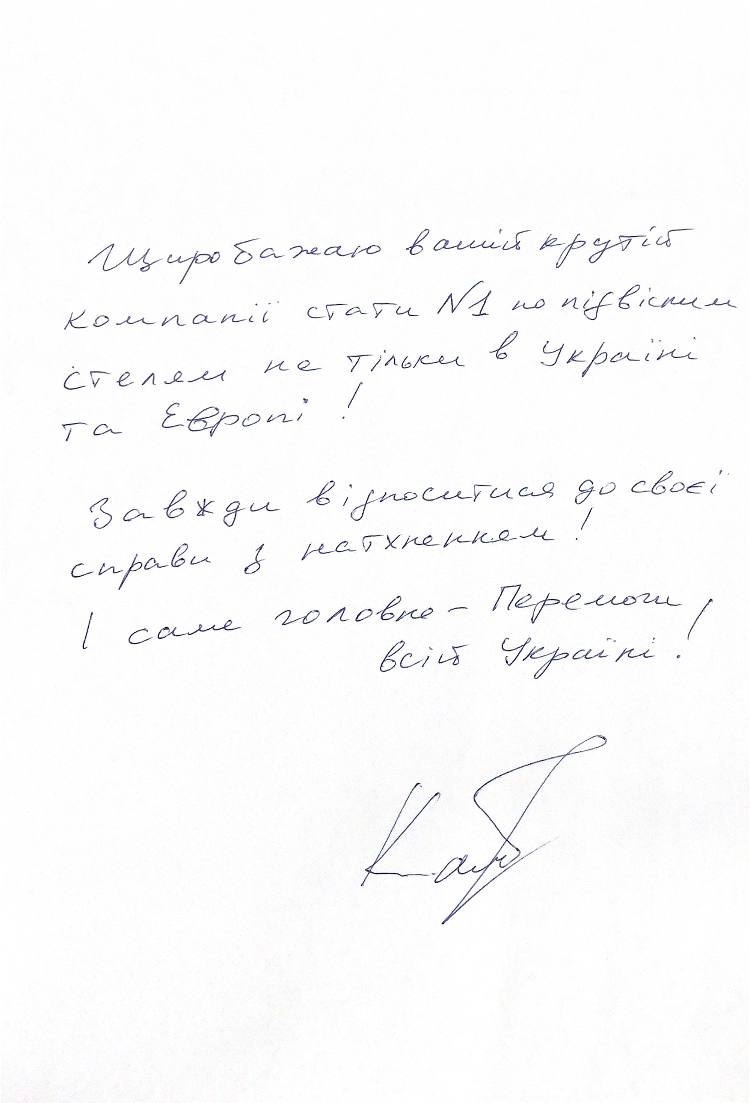 Щиро бажаю вашій крутій
компанії стати №1 по підвісним
стелям не тільки в Україні
та Європі!
Завжди відноситися до своєї
справи з натхненням!
І саме головне – Перемоги
всій Україні!